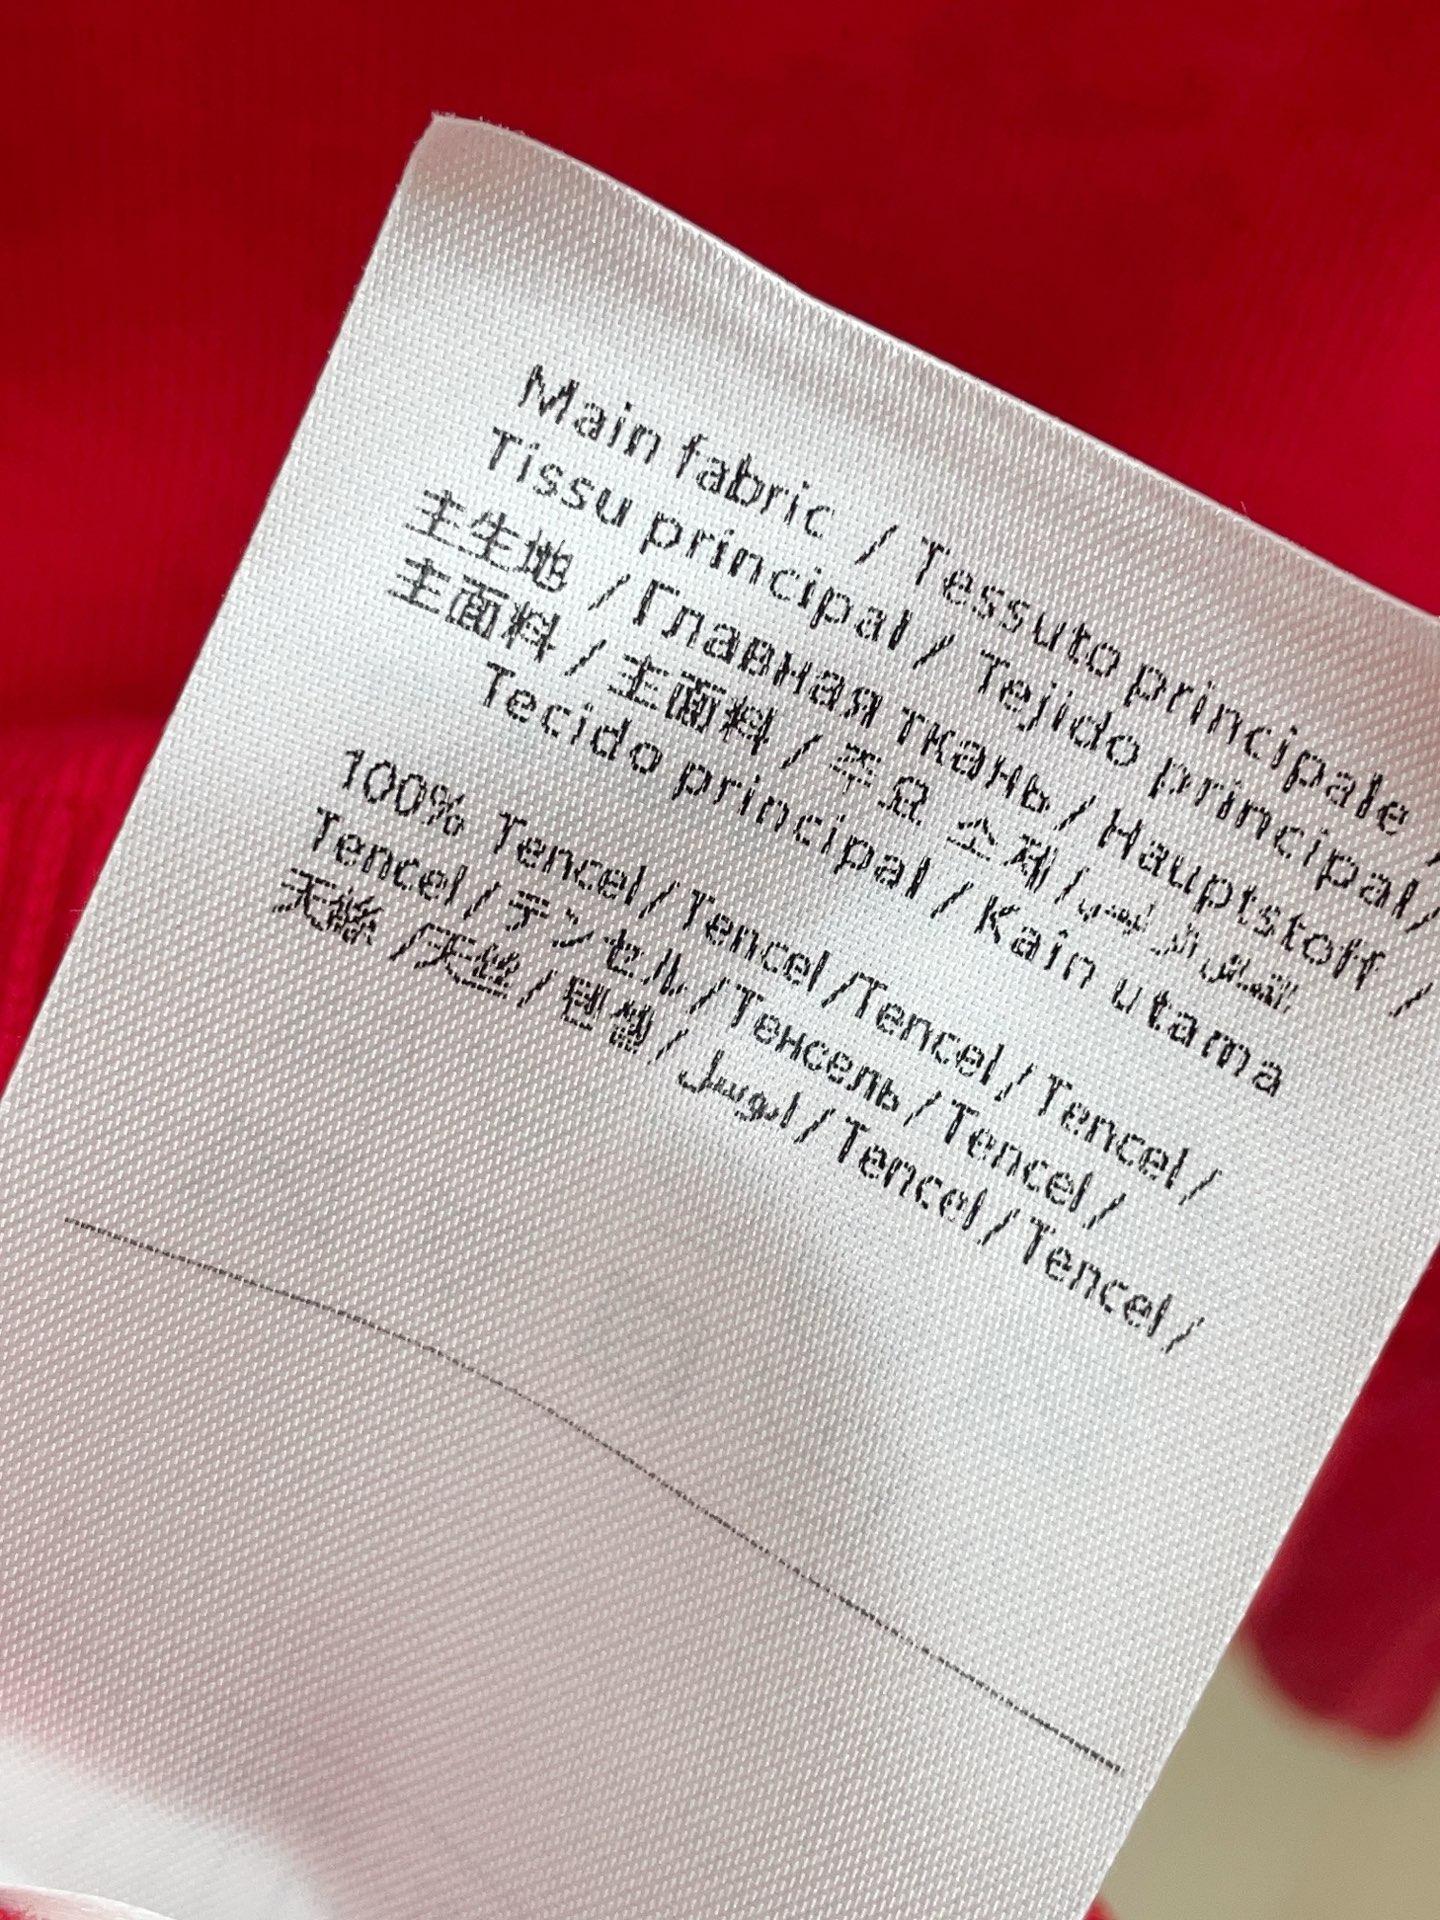 Main fabric / Tessuto principale /
Tissu principal / Tejido principal/
主生地 /Главная ткань/ Hauptstoff /
主面料 / 主面料 / 주요 소재 /
Tecido principal / Kain utama
100% Tencel/Tencel /Tencel / Tencel /
Tencel / テンセル / Тенсель / Tencel /
天絲 /天丝 / 텐셀 / / Tencel / Tencel /